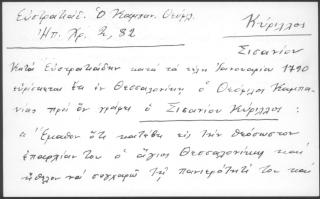 Εὐστρατιάδ. Ὁ Καμπαν. Θεόφιλ.
Κύριλλος
Ἠπ. Χρ. 2, 82
Σισανίου
Κατὰ Εὐστρατιάδην κατὰ τὰ τέλη Ἰανουαρίου 1790
εὑρίσκεται ἐν Θεσσαλονίκῃ ὁ Θεόφιλος Καμπα-
νίας πρὸς ὃν γράφει ὁ Σισανίου Κύριλλος :
« Ἔμαθον ὅτι κατέβη εἰς τὴν θεόσωστον
ἐπαρχίαν του ὁ ἅγιος Θεσσαλονίκης καὶ
ἤθελον νὰ συγχαρῶ τῇ πανιερότητί του καὶ